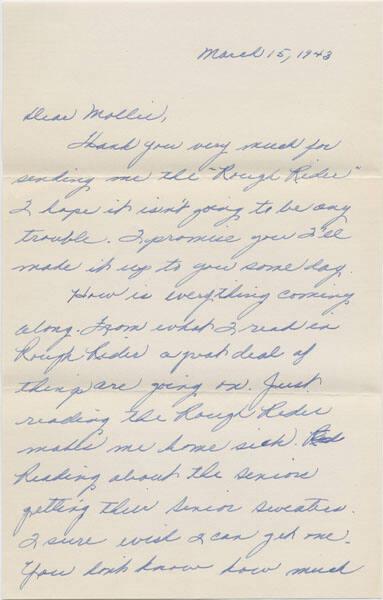 March 15, 1943
Dear Mollie,
Thank you very much for
sending me the "Rough Rider"
I hope it isn't going to be any
trouble. I promise you I'll
made it up to you some day.
How is everything coming
along. From what I read in
Rough Rider a great deal of
things are going on. Just
reading the Rough Rider
makes me home sick.
Reading about the seniors
getting their senior sweaters.
I sure wish I can get one.
You don't know how much